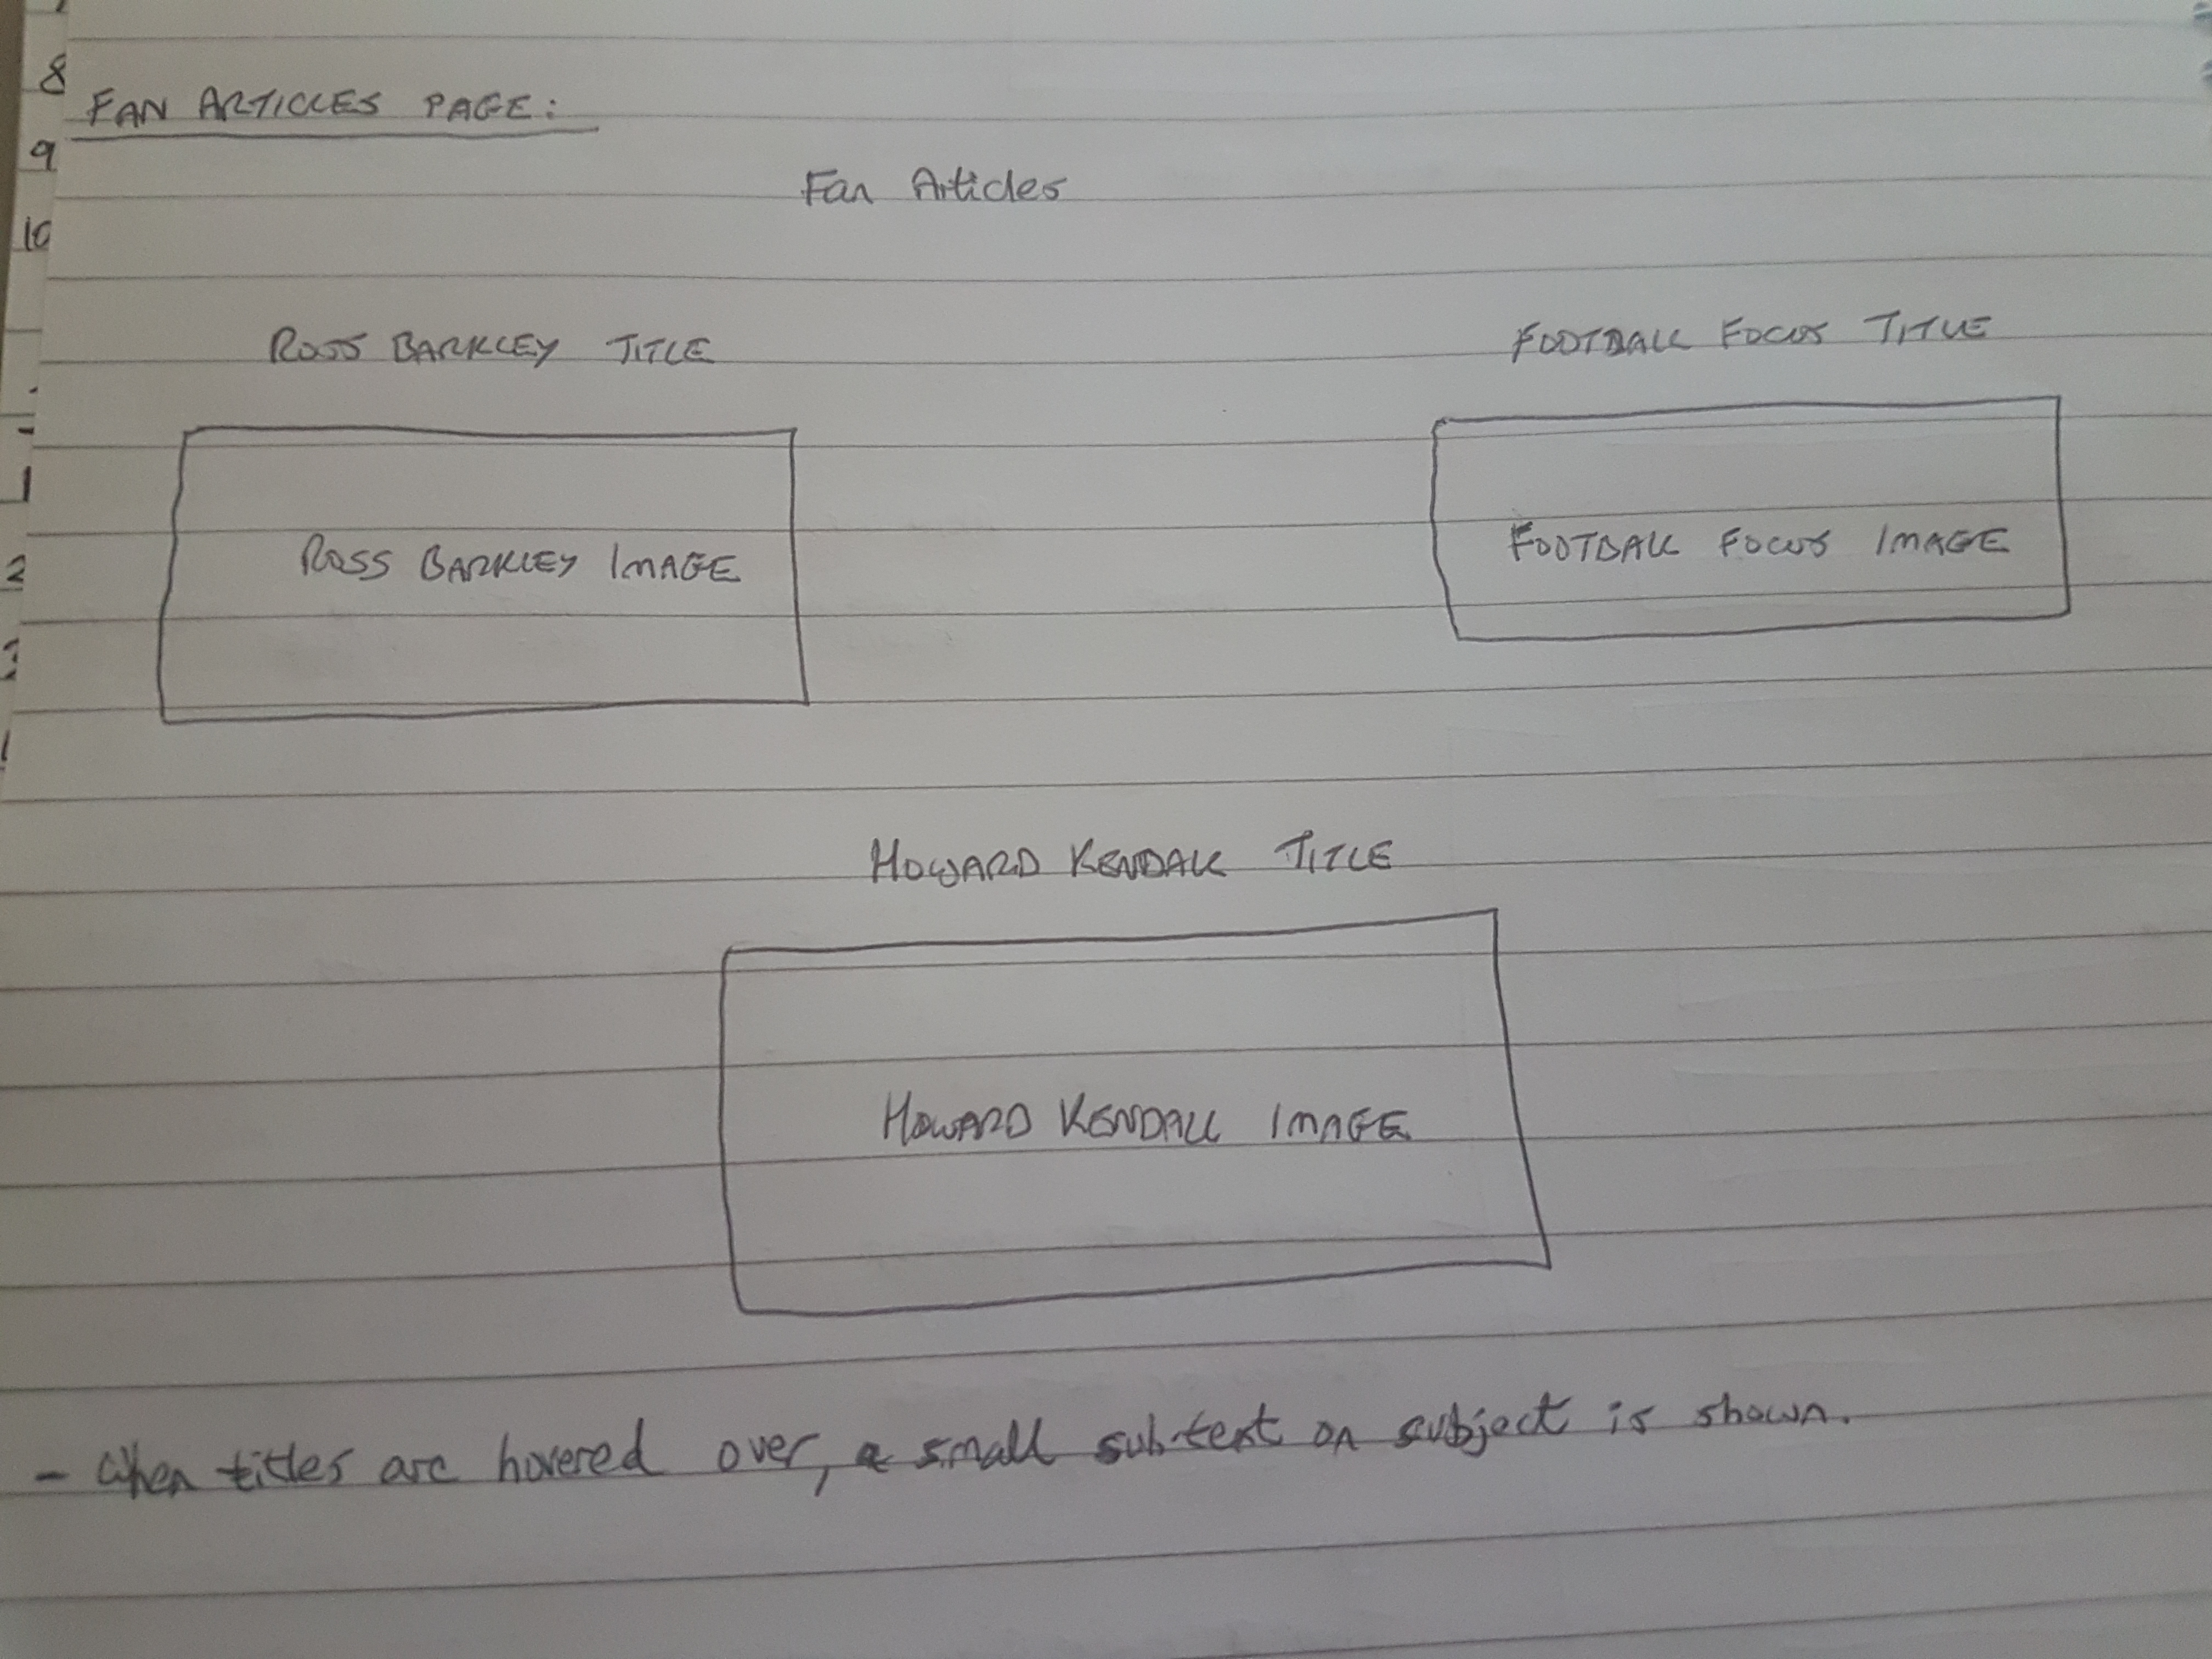 8
FAN ARTICLES PAGE:
9
Fan Articles
10
ROSS BARKLEY TITLE
FOOTBALL FOCUS TITLE
1
ROSS BARKLEY IMAGE
FOOTBALL FOCUS IMAGE
2
3
HOWARD KENDALL TITLE
HOWARD KENDALL IMAGE
- When titles are hovered over, a small subtext on subject is shown.